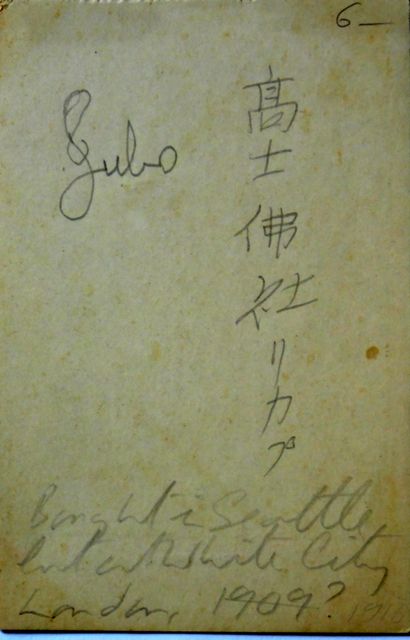 6—
髙士佛社リカプ
Bought in Seattle,
but at White City
London, 1909? 1910